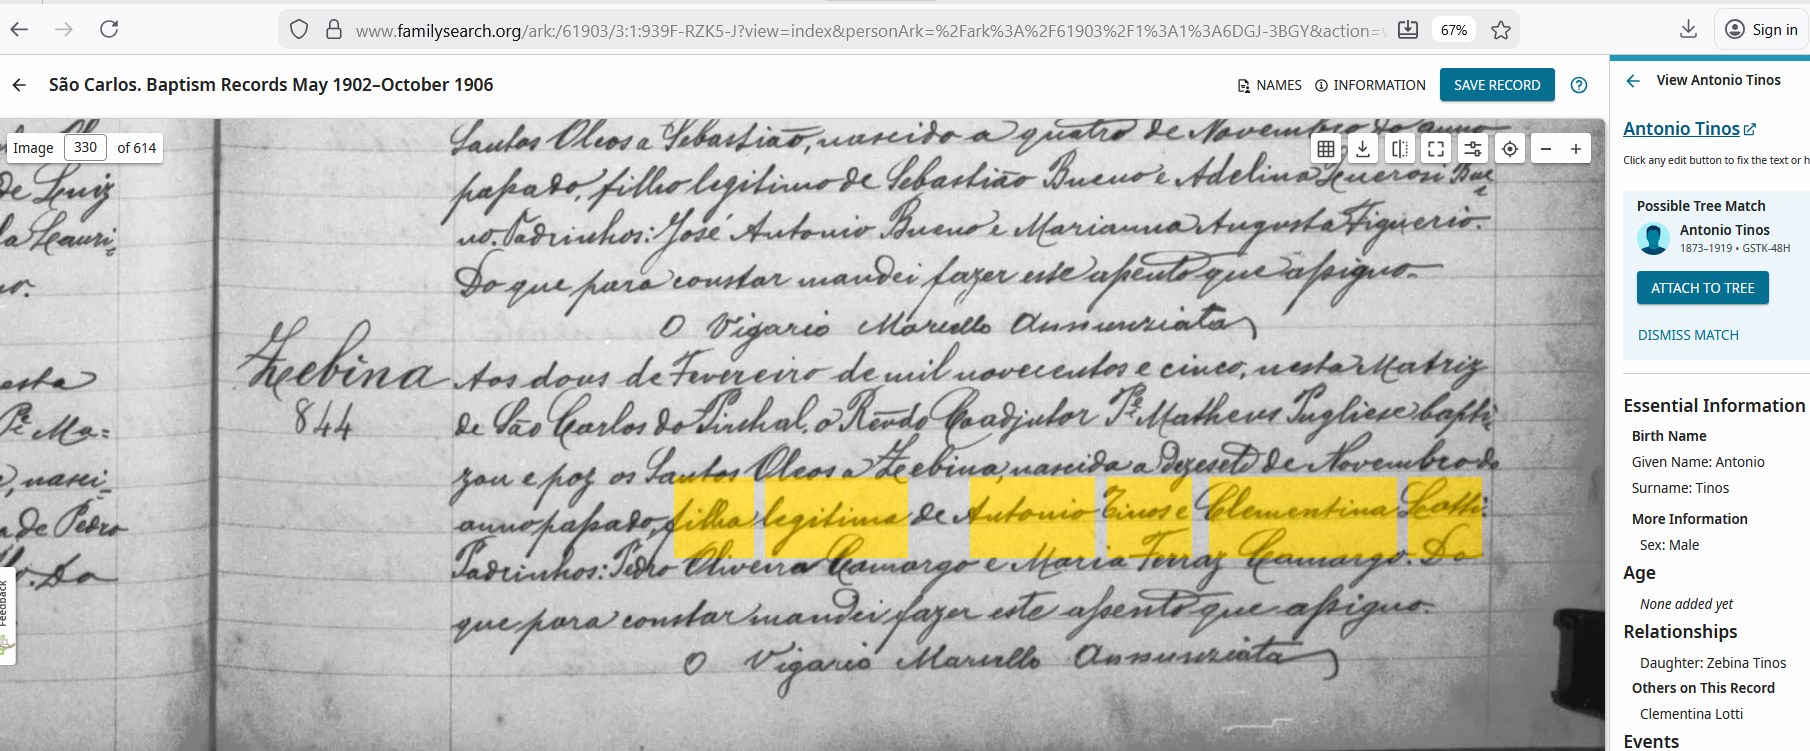 www.familysearch.org/ark:/61903/3:1:939F-RZK5-J?view=index&personArk=%2Fark%3A%2F61903%2F1%3A1%3A6DGJ-3BGY&action=
67%
Sign in
São Carlos. Baptism Records May 1902–October 1906
NAMES
INFORMATION
SAVE RECORD
Image 330 of 614
de Luiz
a Lauri-
no.
esta
Pe. Ma=
, nasci-
a de Pedro
. Do
Santos Oleos a Sebastião, nascido a quatro de Novembro do anno
passado, filho legitimo de Sebastião Bueno e Adelina Bue
no. Padrinhos: José Antonio Bueno e Marianna Augusta Figuerio.
Do que para constar mandei fazer este assento que assigno.
O Vigario Marcello Annunziata
Zebina
844
Aos dous de Fevereiro de mil novecentos e cinco, nesta Matriz
de São Carlos do Pinhal, o Revdo Coadjutor Pe. Matheus Pugliese bapti-
zou e poz os Santos Oleos a Zebina, nascida a dezesete de Novembro do
anno passado, filha legitima de Antonio Tinos e Clementina Lotti.
Padrinhos: Pedro Oliveira Camargo e Maria Ferraz Camargo. Do
que para constar mandei fazer este assento que assigno.
O Vigario Marcello Annunziata
Feedback
View Antonio Tinos
Antonio Tinos
Click any edit button to fix the text or h
Possible Tree Match
Antonio Tinos
1873–1919 • GSTK-48H
ATTACH TO TREE
DISMISS MATCH
Essential Information
Birth Name
Given Name: Antonio
Surname: Tinos
More Information
Sex: Male
Age
None added yet
Relationships
Daughter: Zebina Tinos
Others on This Record
Clementina Lotti
Events